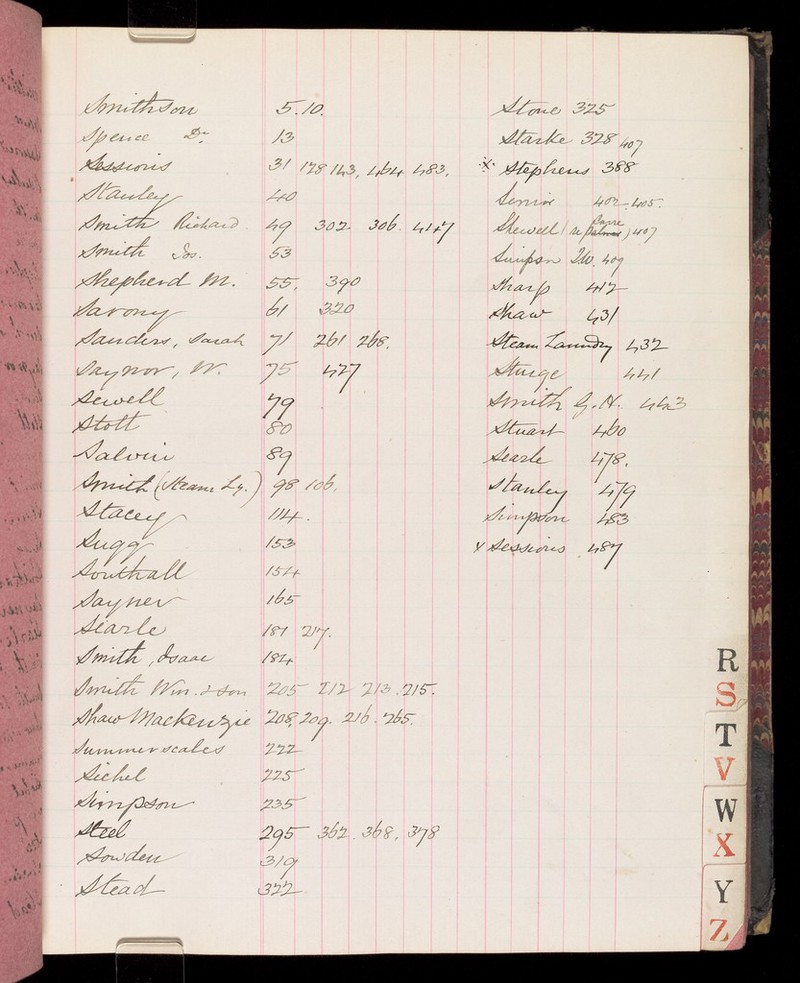 Smithson 5.10.
Spence Dr. 13
Sessions 31 128 143, 464 483.
Stanley 40
Smith Richard 49 302 306 447
Smith Jos. 53
Shepherd M. 55. 390
Savony 61 320
Sanders, Sarah 71 261 268.
Saynor, W. 75 427
Sewell 79
Stott 80
Salvin 89
Smith (Steam Ly.) 98 106.
Stacey 114.
Sugg 153
Southall 154
Sayner 165
Searle 181 217.
Smith, Isaac 184
Smith Wm. & Son 205 212 213.215.
Shaw Mackenzie 208, 209. 216. 265.
Summerscales 222
Sichel 225
Simpson 235
Steel 295 362. 368. 378
Sowden 319
Stead 322
Stone 325
Starke 328 407
x Stephens 388
Senior 402-405.
Shewell (re ) 407
Simpson T.W. 409
Sharp 412
Shaw 431
Steam Laundry 432
Sturge 441
Smith G. H. 443
Stuart 460
Searle 478.
Stanley 479
Simpson 483
x Sessions 487
R
S
T
V
W
X
Y
Z